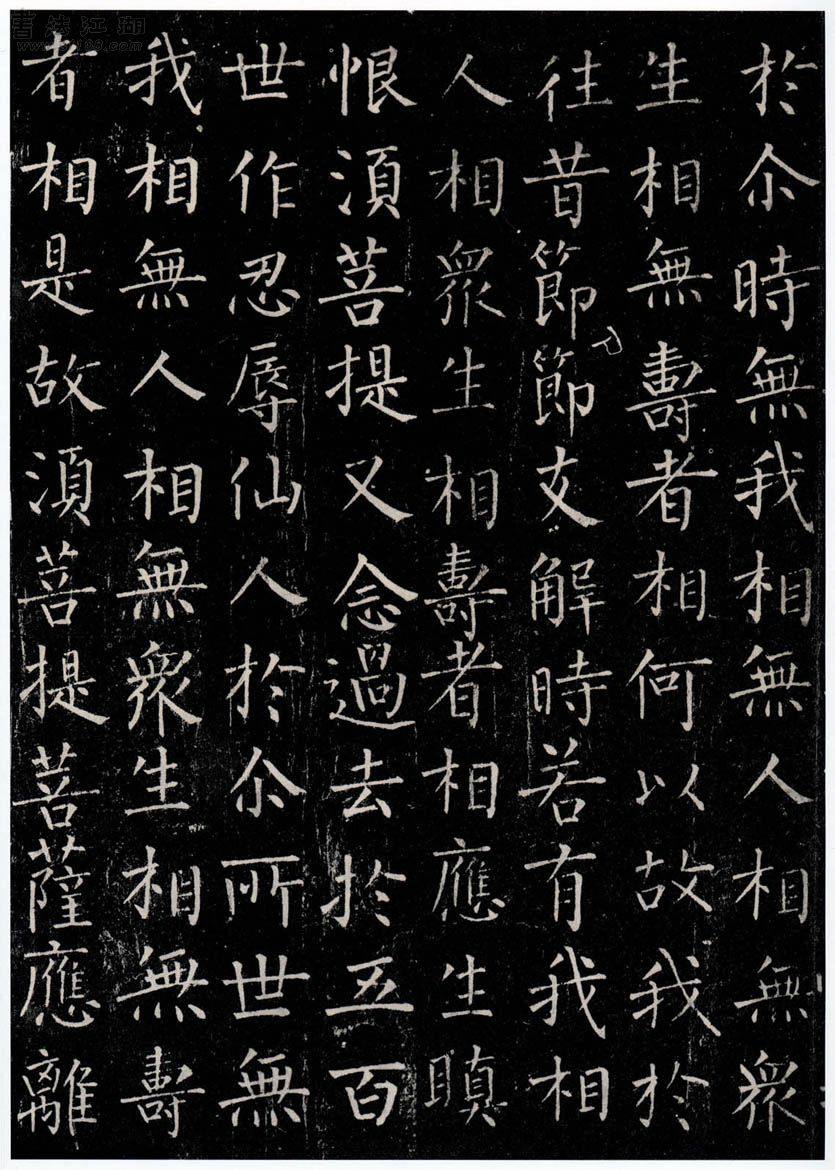 於尒時無我相無人相無衆
生相無壽者相何以故我於
往昔節節支解時若有我相
人相衆生相壽者相應生瞋
恨須菩提又念過去於五百
世作忍辱仙人於尒所世無
我相無人相無衆生相無壽
者相是故須菩提菩薩應離
書法江湖